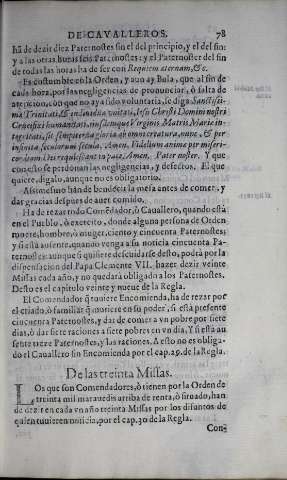 DE CAVALLEROS. 78
há de dezir diez Paternostes sin el del principio, y el del fin:
y a las otras horas seis Paternostes: y el Paternoster del fin
de todas las horas ha de ser con Requiem æternam, &c.
Es costumbre en la Orden, y aun ay Bula, que al fin de
cada hora, por las negligencias de pronunciar, ò falta de
atencion, con que no aya sido voluntaria, se diga Sanctissi-
ma Trinitati, & indiuiduæ vnitati, Iesu Christi Domini nostri
Crucifixi humanitati, eiusdemque Virginis Matris Mariæ in-
tegritati, sit sempiterna gloria ab omni creatura, nunc, & per
infinita sæculorum sæcula. Amen. Fidelium animæ per miseri-
cordiam Dei requiescant in pace, Amen. Pater noster. Y que
con esto se perdonan las negligencias, y defectos. El que
quiere, digalo, aunque no es obligatorio.
Assimesmo hán de bendezir la mesa antes de comer, y
dar gracias despues de auer comido.
Ha de rezar todo Comẽdador, ò Cauallero, quando está
en el Pueblo, ò exercito, donde alguna persona de Orden
muere, hombre, ò muger, ciento y cincuenta Paternostes;
y si está ausente, quando venga a su noticia cincuenta Pa-
ternostes: aunque si quisiere descuidarse desto, podrá por la
dispensacion del Papa Clemente VII. hazer dezir veinte
Missas cada año, y no quedará obligado a los Paternostes.
Desto es el capitulo veinte y nueve de la Regla.
El Comendador q̃ tuviere Encomienda, ha de rezar por
el criado, ò familiar q̃ muriere en su poder, si está presente
cincuenta Paternostes, y dar de comer a vn pobre por siete
dias, ò dar siete raciones a siete pobres en vn dia. Y si está au
sente tiete Paternostes, y las raciones. A esto no es obliga-
do el Cauallero sin Encomienda por el cap. 29. de la Regla.
De las treinta Missas.
LOs que son Comendadores, ò tienen por la Orden de
treinta mil marauedis arriba de renta, ò situado, han
de dezir en cada vn año treinta Missas por los difuntos de
quien tuuieren noticia, por el cap. 30 de la Regla.
Con-